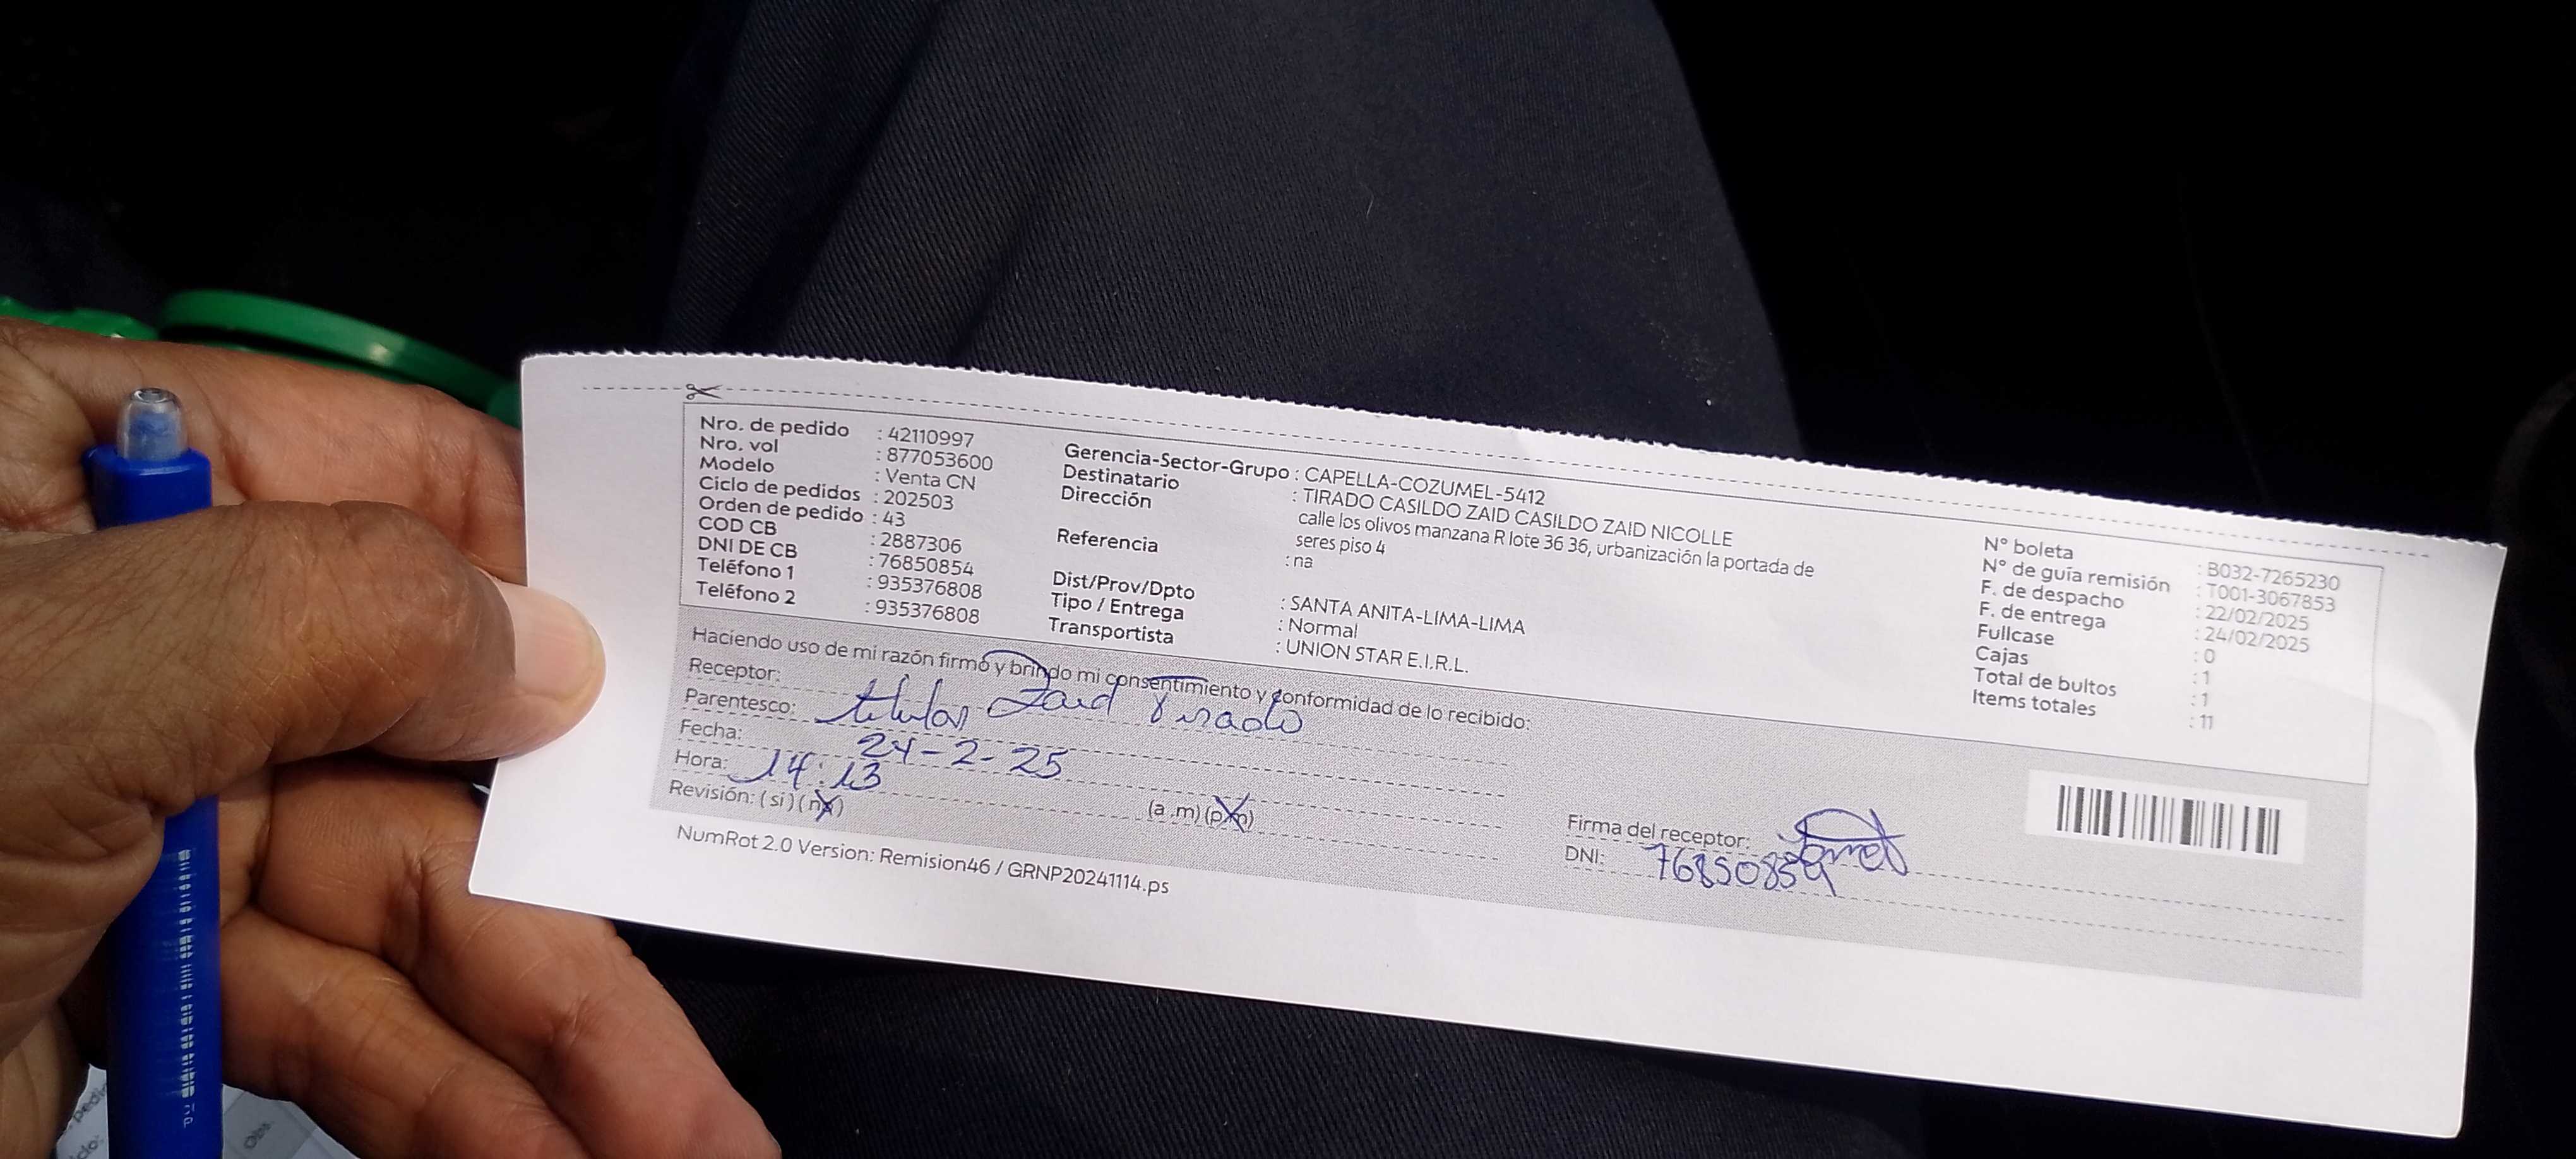 Nro. de pedido : 42110997
Nro. vol : 877053600
Modelo : Venta CN
Ciclo de pedidos : 202503
Orden de pedido : 43
COD CB : 2887306
DNI DE CB : 76850854
Teléfono 1 : 935376808
Teléfono 2 : 935376808
Gerencia-Sector-Grupo : CAPELLA-COZUMEL-5412
Destinatario : TIRADO CASILDO ZAID CASILDO ZAID NICOLLE
Dirección calle los olivos manzana R lote 36 36, urbanización la portada de
seres piso 4
Referencia : na
Dist/Prov/Dpto : SANTA ANITA-LIMA-LIMA
Tipo / Entrega : Normal
Transportista : UNION STAR E.I.R.L.
N° boleta : B032-7265230
N° de guía remisión : T001-3067853
F. de despacho : 22/02/2025
F. de entrega : 24/02/2025
Fullcase : 0
Cajas : 1
Total de bultos : 1
Items totales : 11
Haciendo uso de mi razón firmo y brindo mi consentimiento y conformidad de lo recibido:
Receptor:
Parentesco: titular Zaid Tirado
Fecha: 24-2-25
Hora: 14:13 (a .m) (p.m)
Revisión: ( si ) ( no )
Firma del receptor:
DNI: 76850854
NumRot 2.0 Version: Remision46 / GRNP20241114.ps